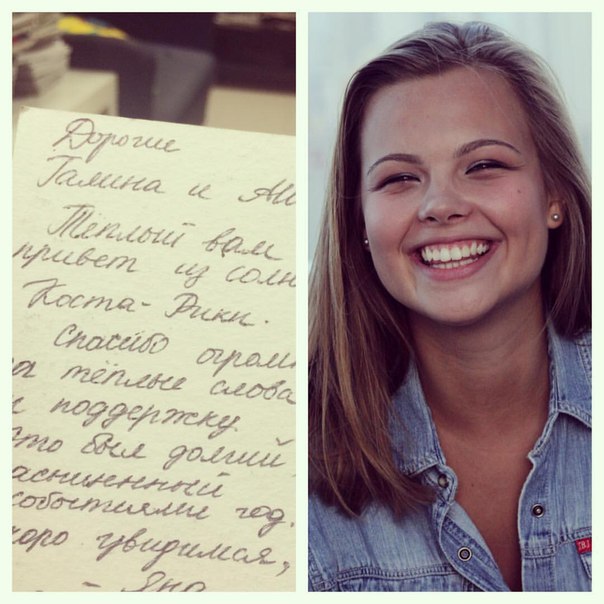 Дорогие
Галина и
Тёплый вам
привет из солн
Коста-Рики.
Спасибо огром
а тёплые слова
и поддержку.
это был долгий,
асыщенный
событиями год.
коро увидимся,
- Яна